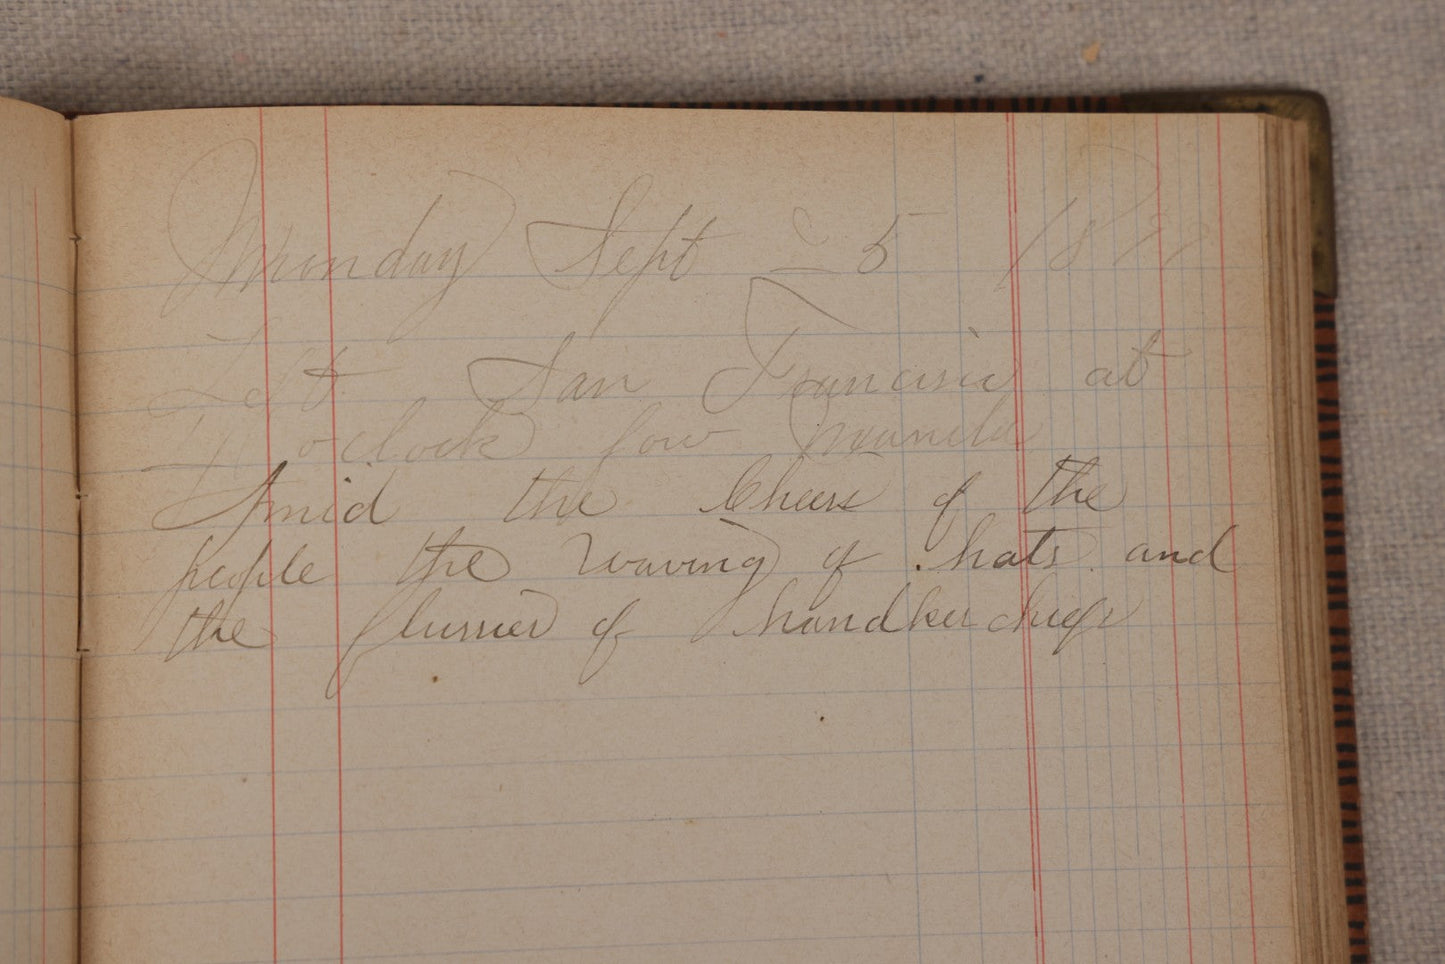 Monday Sept 25 1899
Left San Francisco at
o'clock for Manila
Amid the Cheers of the
people the waving of hats and
the flurrier of handkerchiefs